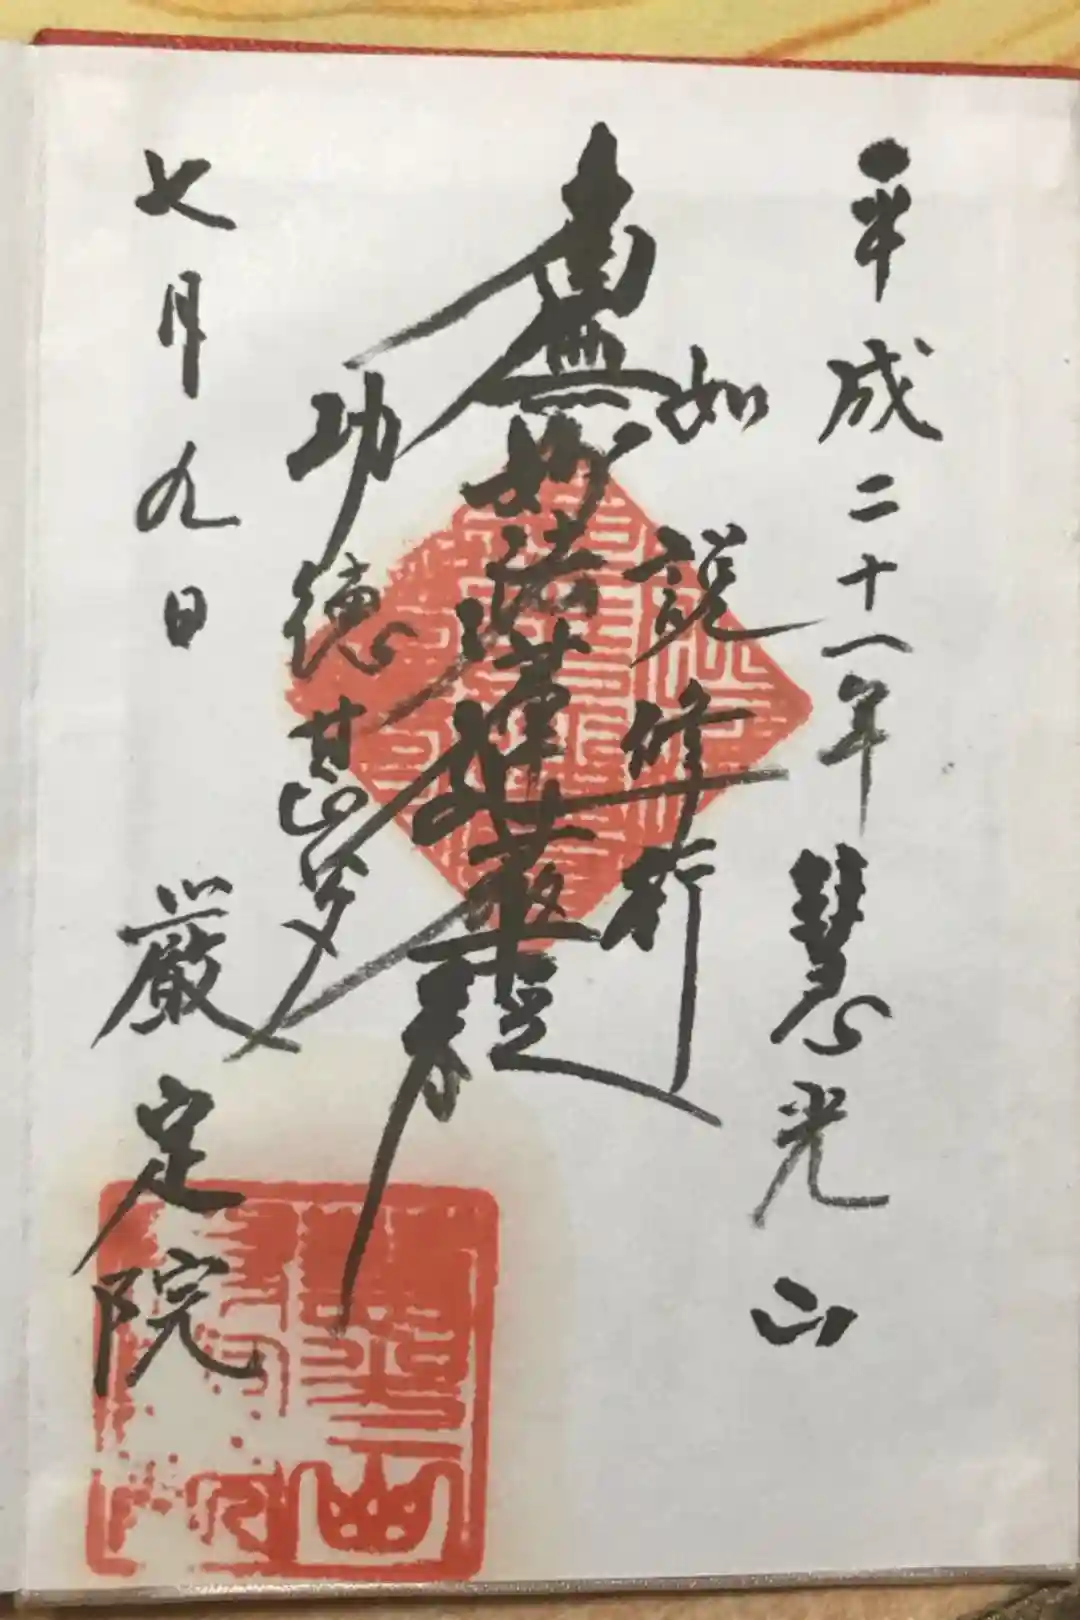 平成二十八年 慧光山
如説修行
南無妙法蓮華経
功徳甚多
七月九日 厳定院